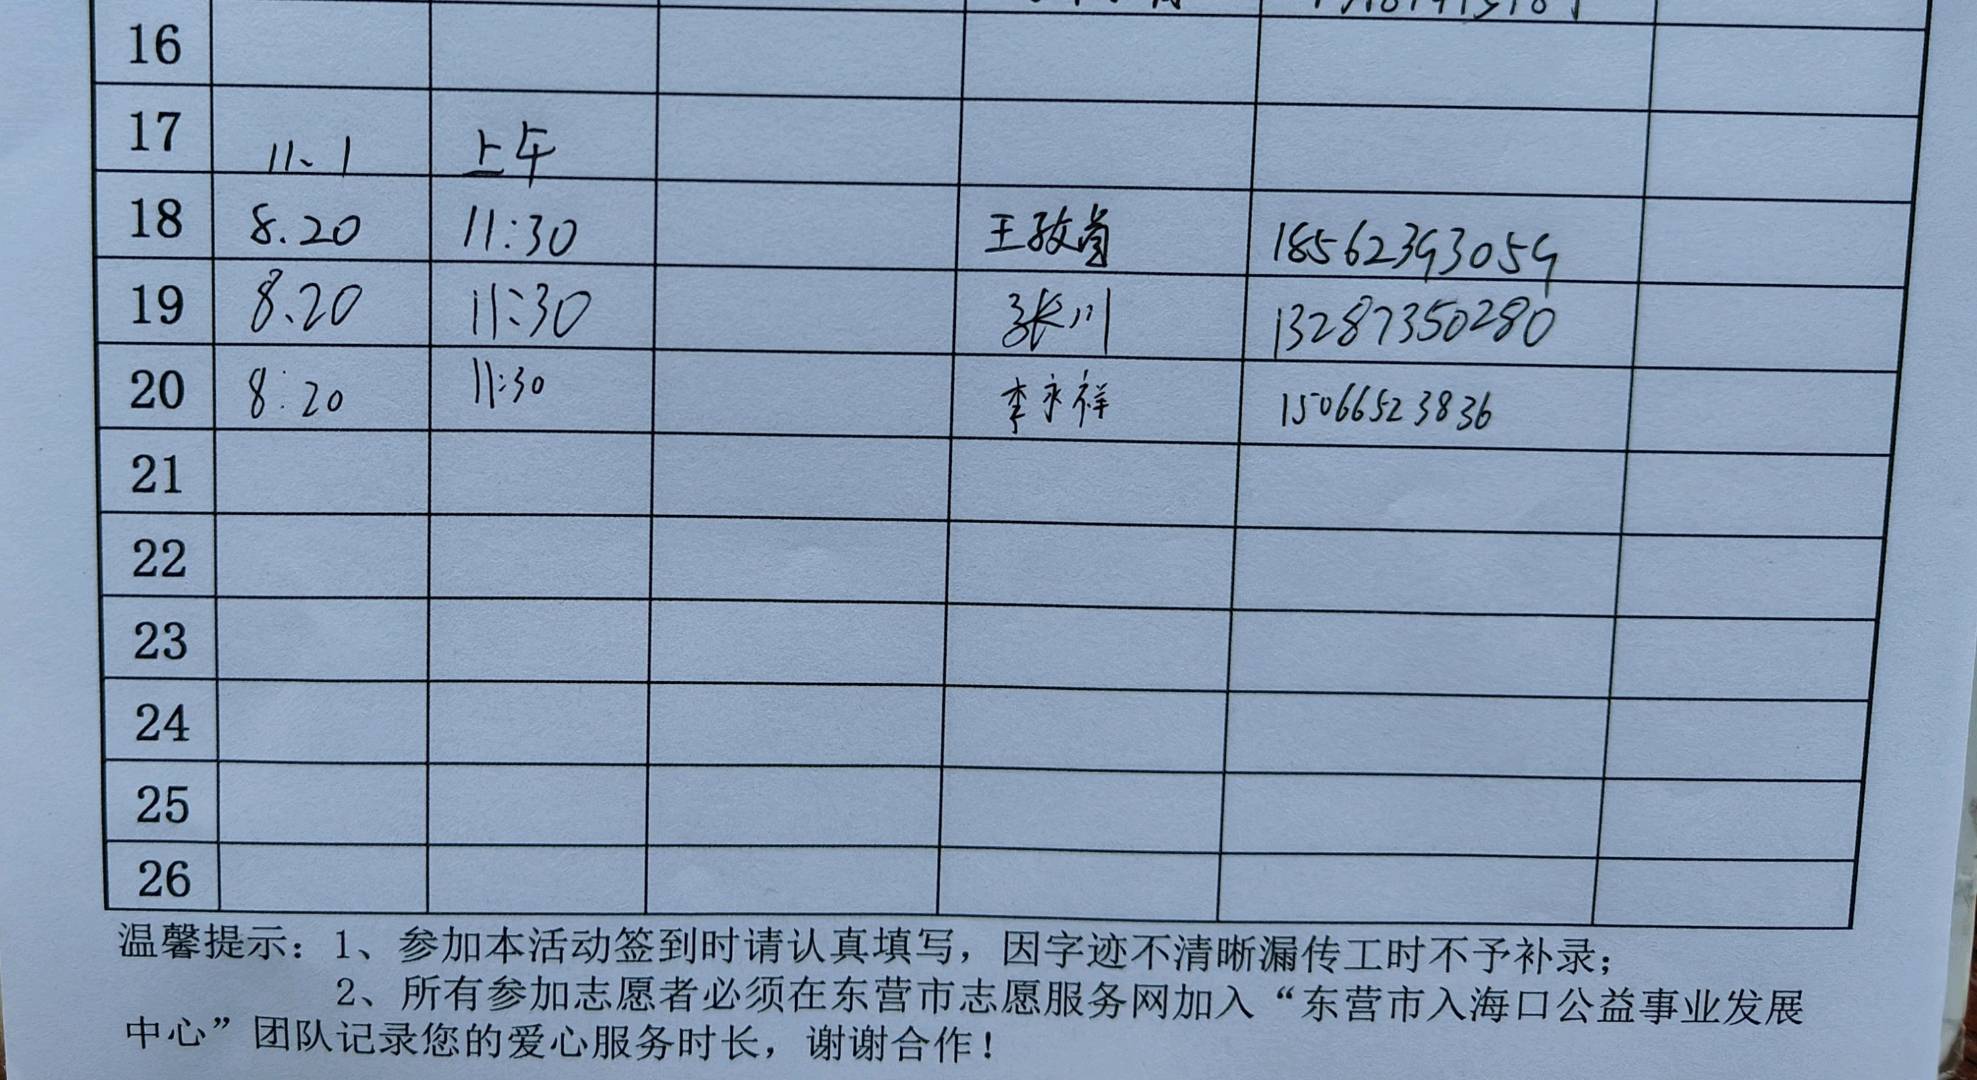 16
17 11、1 上午
18 8.20 11:30 18562393059
19 8.20 11:30 张川 13287350280
20 8:20 11:30 李永祥 15066523836
21
22
23
24
25
26
温馨提示：1、参加本活动签到时请认真填写，因字迹不清晰漏传工时不予补录；
2、所有参加志愿者必须在东营市志愿服务网加入“东营市入海口公益事业发展
中心”团队记录您的爱心服务时长，谢谢合作！